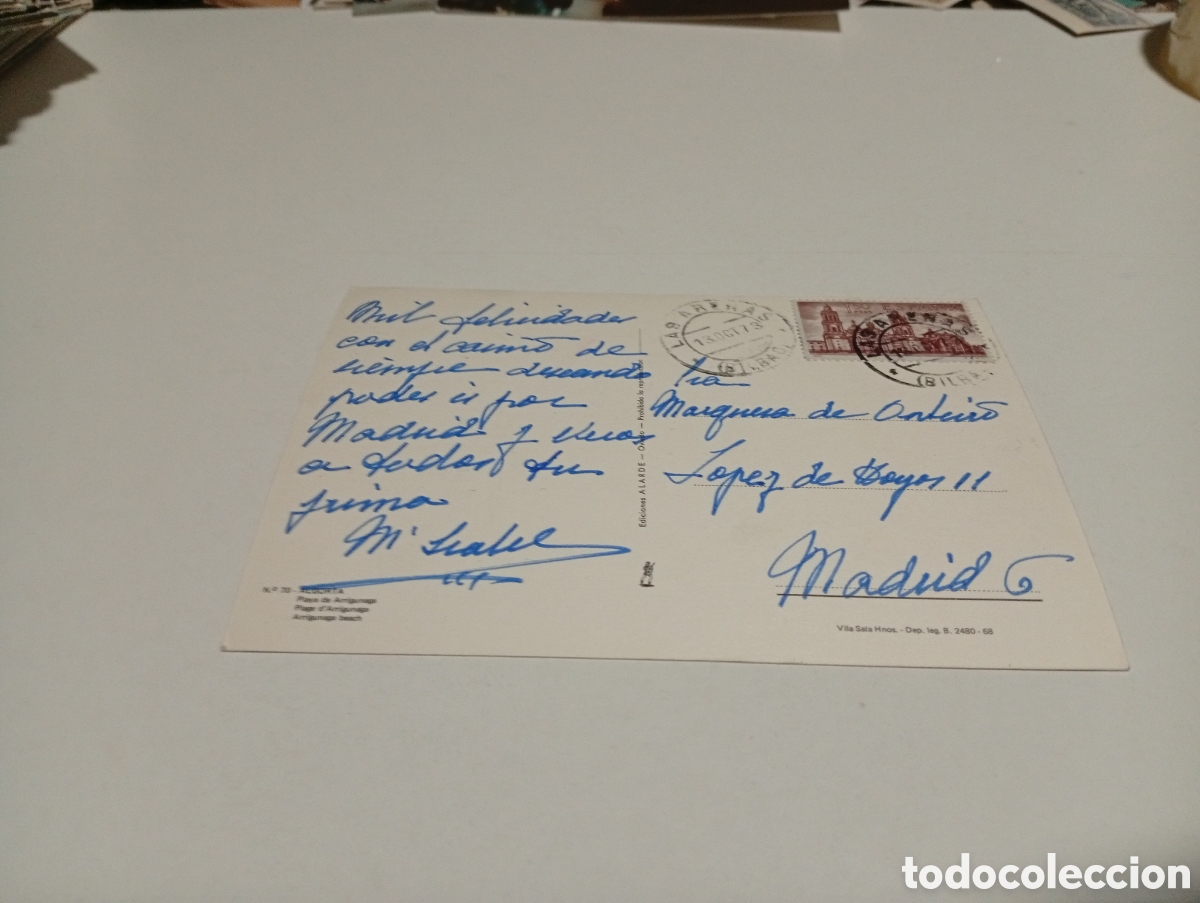 Mil felicidades
con el cariño de
siempre deseando
poder ir por
Madrid y veros
a todos tu
prima
Mª Isabel
Nº 70 - ALGORTA
Playa de Arrigunaga
Plage d'Arrigunaga
Arrigunaga beach
Ediciones ALARDE - Oviedo - Prohibida la
LAS ARENAS
13 OCT 73
(BILBAO)
LAS ARENAS
(BILBAO)
Sra
Marquesa de Onteiro
Lopez de Hoyos 11
Madrid 6
Vila Sala Hnos. - Dep. leg. B. 2480 - 68
todocoleccion